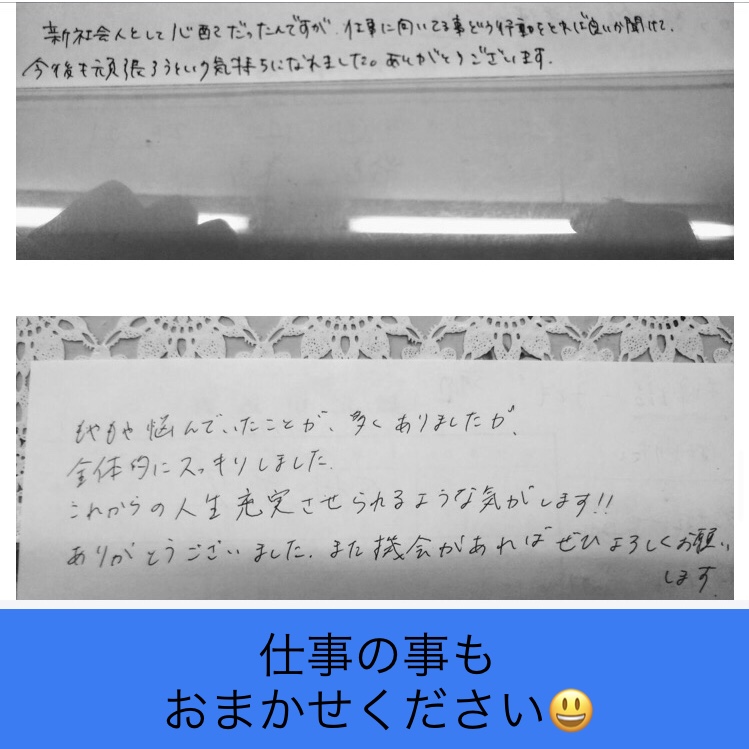 新社会人として心配だったんですが、仕事に向いてる事どう行動をとれば良いか聞けて、
今後も頑張ろうという気持ちになれました。ありがとうございます。
もやもや悩んでいたことが、多くありましたが、
全体的にスッキリしました。
これからの人生充実させられるような気がします!!
ありがとうございました。また機会があればぜひよろしくお願い
します。
仕事の事も
おまかせください😃